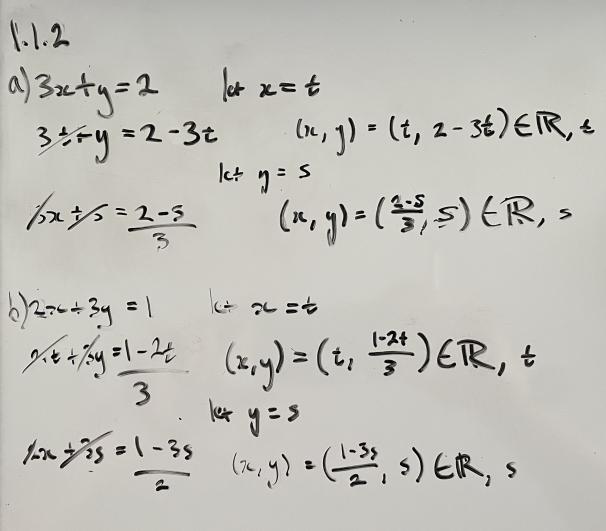 1.1.2
a) 3x + y = 2 let x = t
3t + y = 2 - 3t (x, y) = (t, 2 - 3t) ∈ ℝ, t
let y = s
3x + s = 2 - s / 3 (x, y) = (2-s/3, s) ∈ ℝ, s
b) 2x + 3y = 1 let x = t
2t + 3y = 1 - 2t / 3 (x, y) = (t, 1-2t/3) ∈ ℝ, t
let y = s
2x + 3s = 1 - 3s / 2 (x, y) = (1-3s/2, s) ∈ ℝ, s